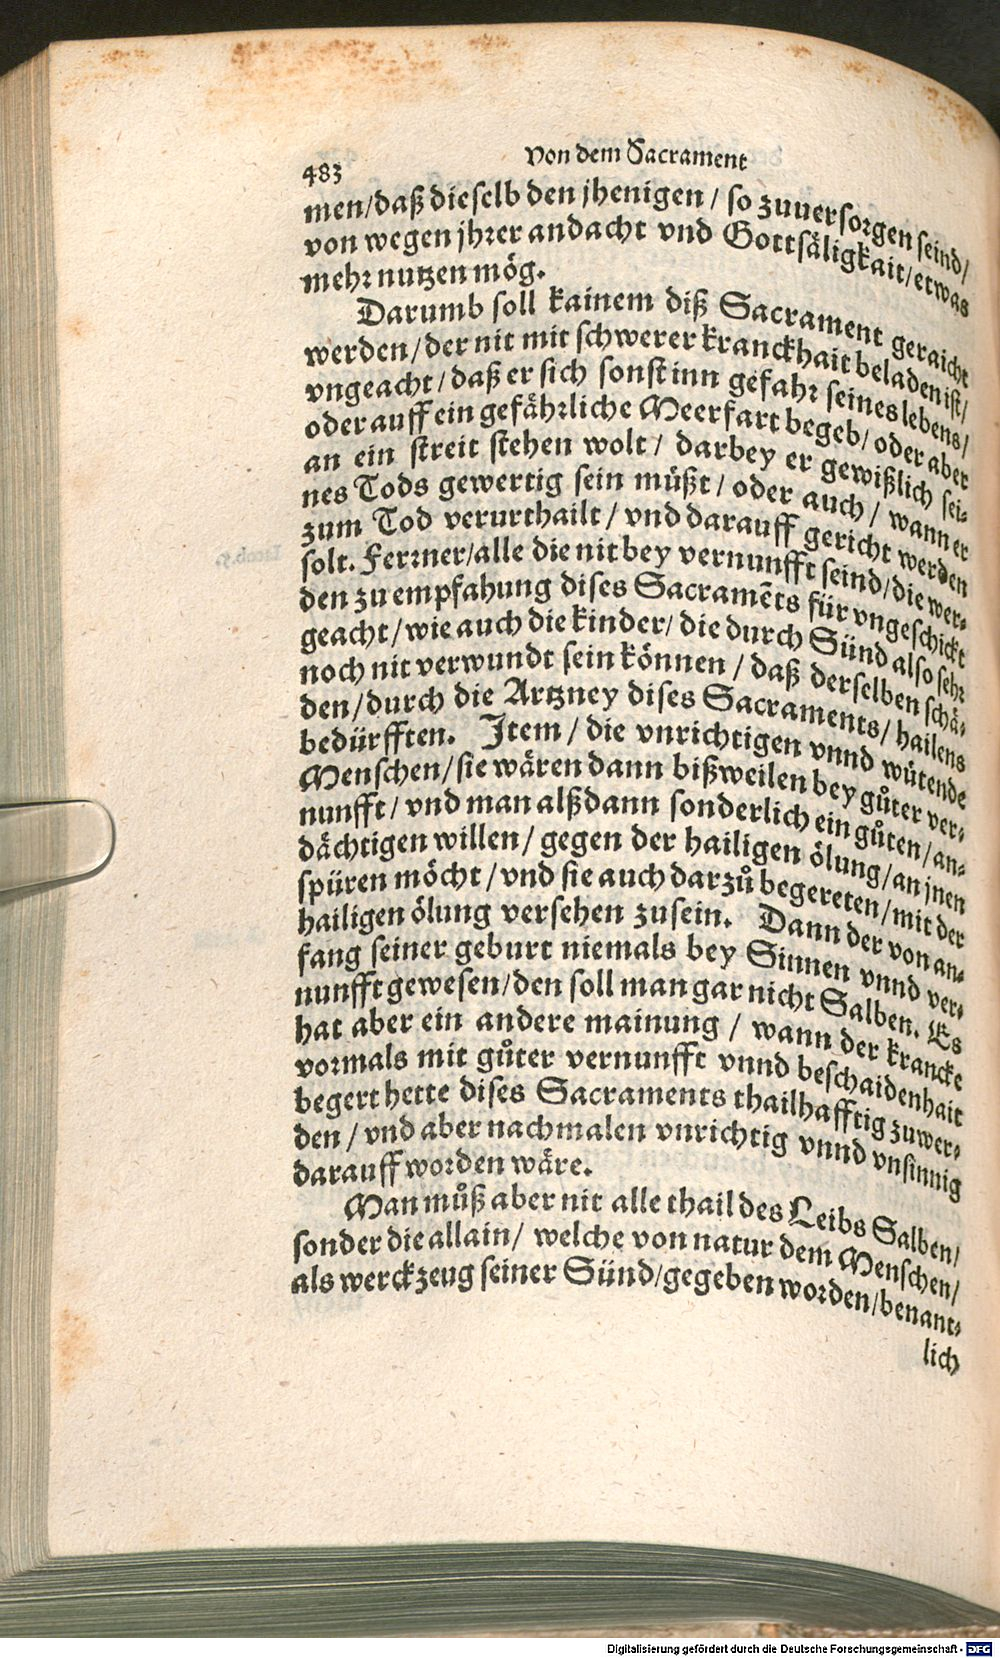 483
Von dem Sacrament
men/daß dieselb den jhenigen / so zuuersorgen seind/
von wegen jhrer andacht vnd Gottsäligkait/etwas
mehr nutzen mög.
Darumb soll kainem diß Sacrament geraicht
werden/der nit mit schwerer kranckhait beladen ist/
vngeacht/daß er sich sonst inn gefahr seines lebens/
oder auff ein gefährliche Meerfart begeb/oder aber
an ein streit stehen wolt/ darbey er gewißlich sei-
nes Tods gewertig sein müßt/oder auch/ wann er
zum Tod verurthailt/vnd darauff gericht werden
solt. Ferrner/alle die nit bey vernunfft seind/die wer-
den zu empfahung dises Sacramēts für vngeschickt
geacht/wie auch die kinder/ die durch Sünd also sehr
noch nit verwundt sein können / daß derselben schä-
den/durch die Artzney dises Sacraments/hailens
bedürfften. Item / die vnrichtigen vnnd wütende
Menschen/sie wären dann bißweilen bey gůter ver-
nunfft/vnd man alßdann sonderlich ein gůten/an-
dächtigen willen/gegen der hailigen ölung/an jnen
spüren möcht/vnd sie auch darzů begereten/mit der
hailigen ölung versehen zusein. Dann der von an-
fang seiner geburt niemals bey Sinnen vnnd ver-
nunfft gewesen/den soll man gar nicht Salben. Es
hat aber ein andere mainung / wann der krancke
vormals mit gůter vernunfft vnnd beschaidenhait
begert hette dises Sacraments thailhafftig zuwer-
den / vnd aber nachmalen vnrichtig vnnd vnsinnig
darauff worden wäre.
Man můß aber nit alle thail des Leibs Salben/
sonder die allain/ welche von natur dem Menschen/
als werckzeug seiner Sünd/gegeben worden/benant-
lich
Digitalisierung gefördert durch die Deutsche Forschungsgemeinschaft - DFG